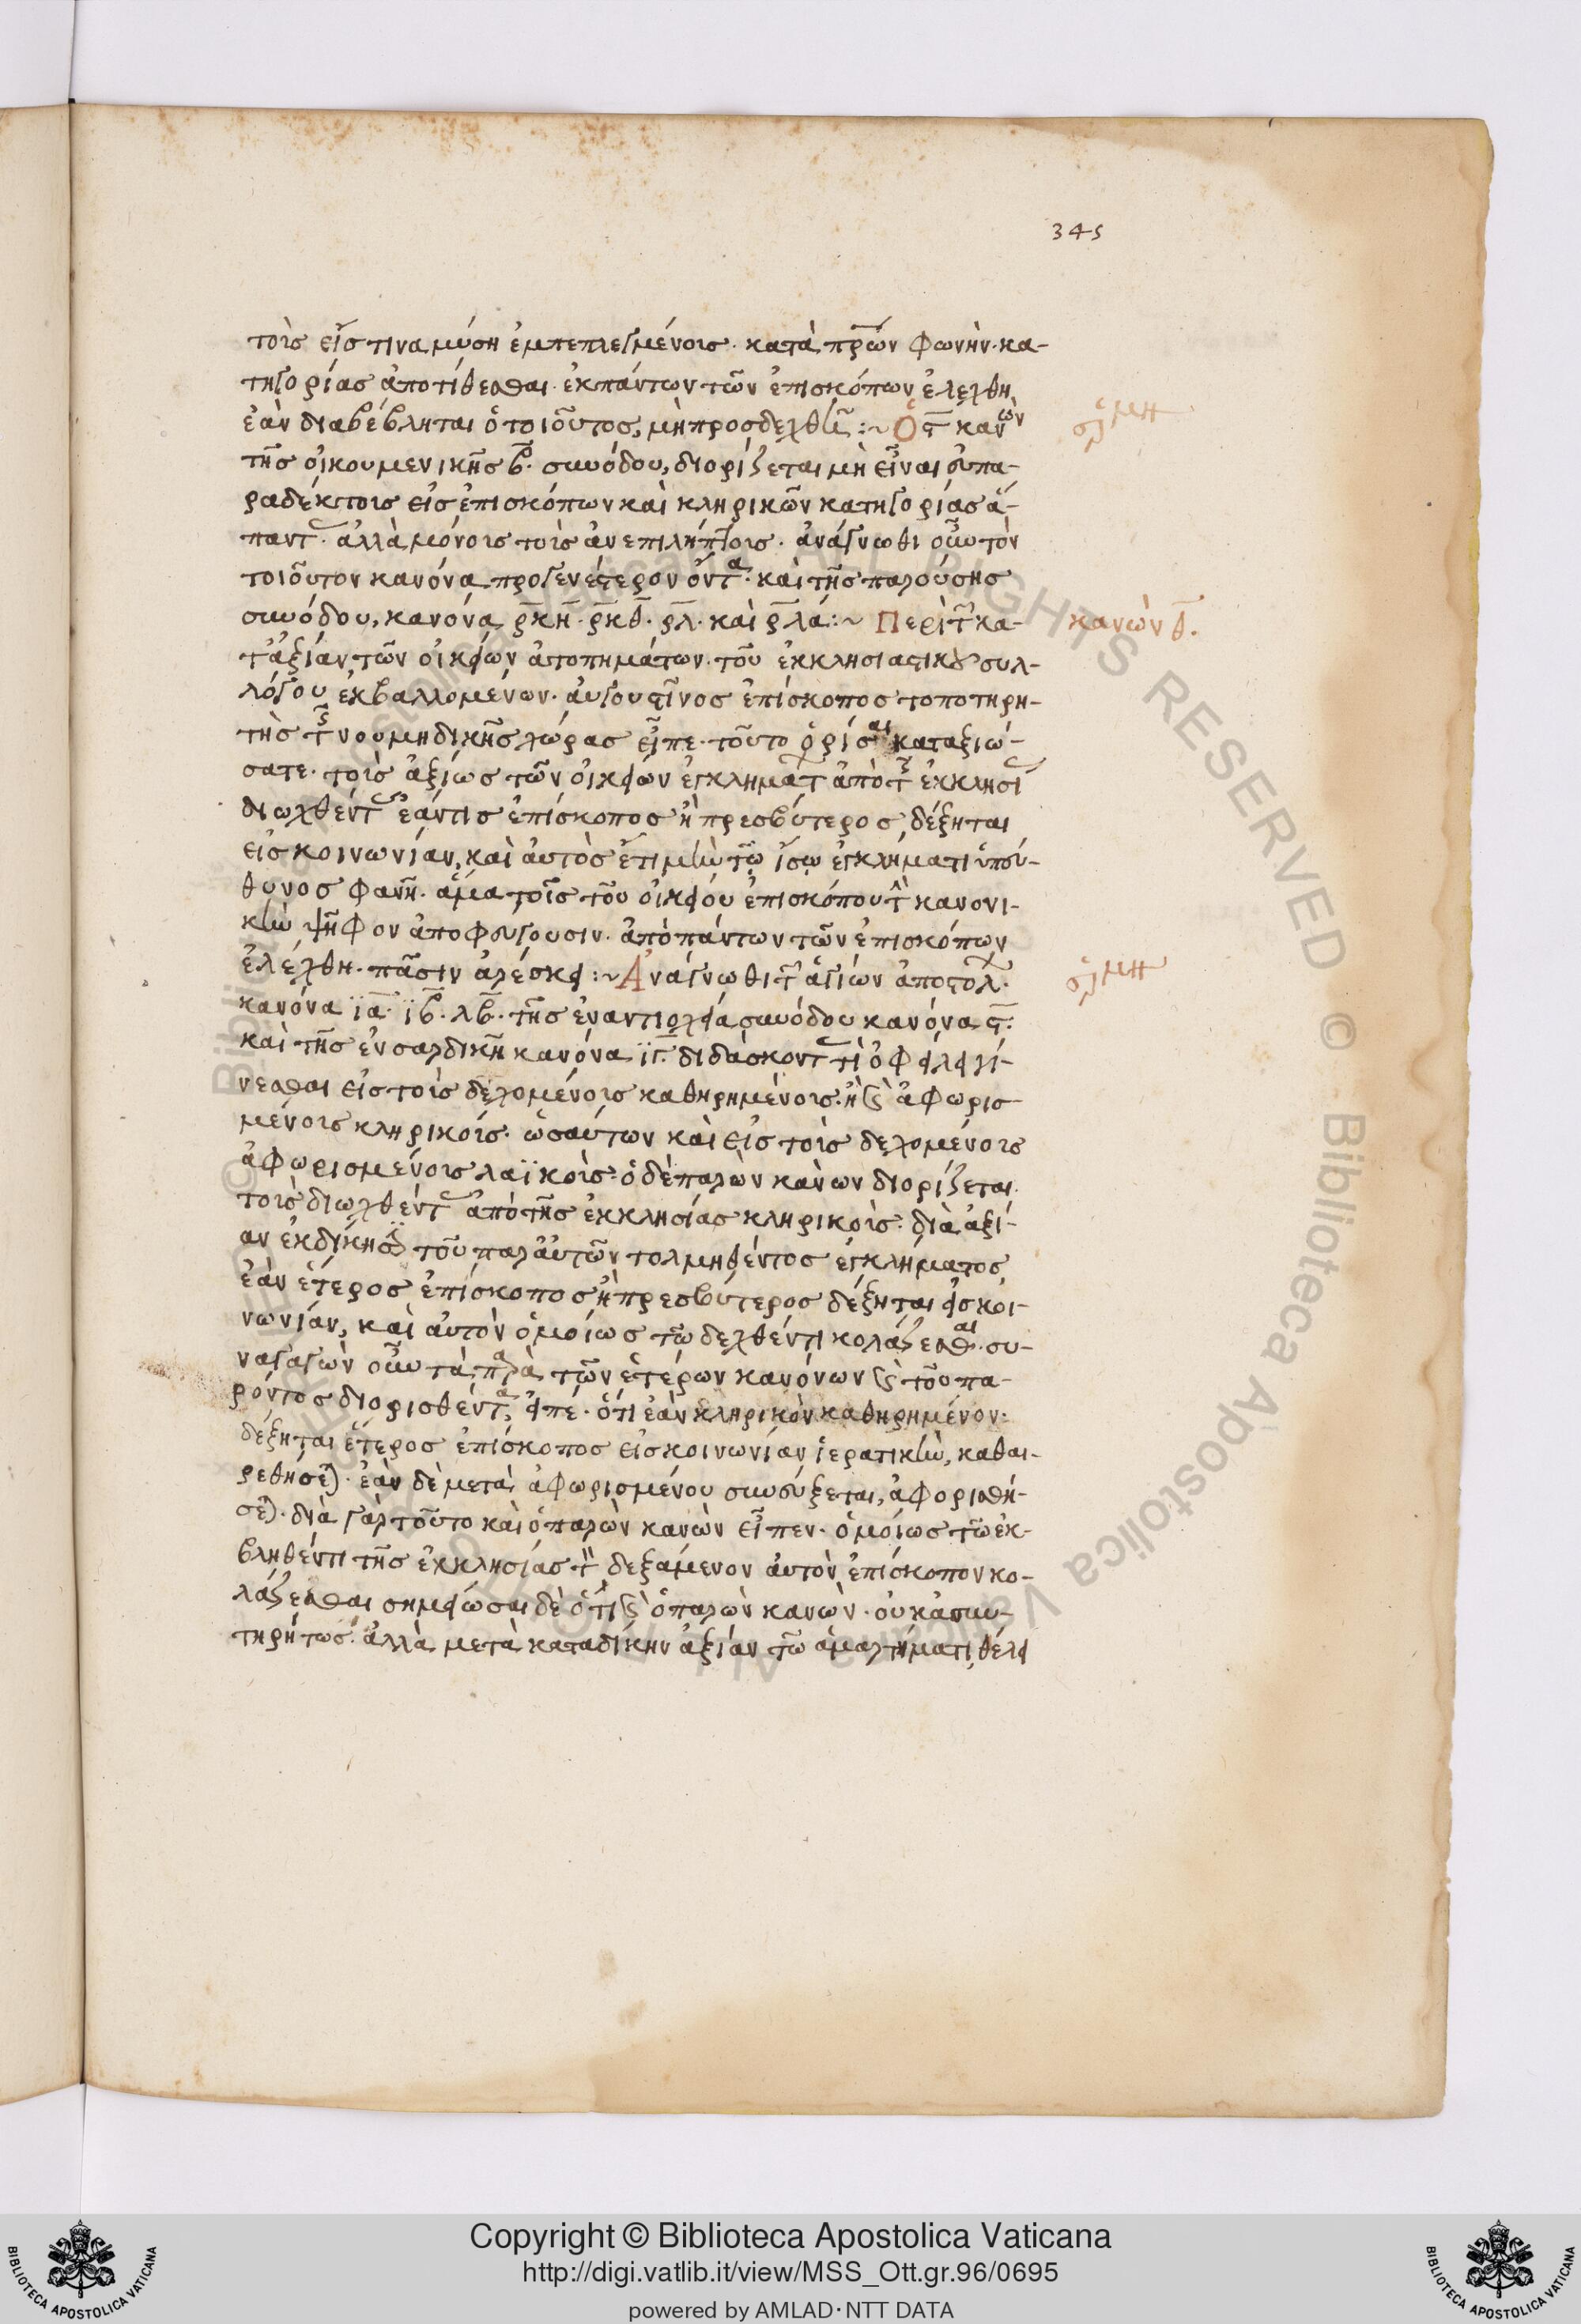 345
τοῖς εἴς τινα μύση ἐμπεπλεγμένοις· κατὰ πρῶν φωνὴν· κα-
τηγορίας ἀποτίθεσθαι· ἐκ πάντων τῶν ἐπισκόπων ἐλέχθη
ἐὰν διαβέβληται ὁ τοιοῦτος, μὴ προσδεχθῆ :~ Ὁ ς κανὼν
σχ μη
τῆς οἰκουμενικῆς β· συνόδου, διορίζεται μὴ εἶναι εὐπα-
ραδέκτοις εἰς ἐπισκόπων καὶ κληρικῶν κατηγορίας ἅ-
παντ· ἀλλὰ μόνοις τοῖς ἀνεπιλήπτοις· ἀνάγνωθι οὖν τὸν
τοιοῦτον κανόνα προγενέστερον ὄντα· καὶ τῆς παρούσης
συνόδου, κανόνα ρκη· ρκθ· ρλ· καὶ ρλά :~ Περὶ τ κα-
κανὼν θ·
τ ἀξίαν τῶν οἰκείων ἀτοπημάτων τοῦ ἐκκλησιαστικοῦ συλ-
λόγου ἐκβαλλομένων· αὐγουστῖνος ἐπίσκοπος τοποτηρη-
τὴς τῆς νουμηδικῆς χώρας εἶπε· τοῦτο ὁρίσαι καταξιώ-
σατε· τοῖς ἀξίως τῶν οἰκείων ἐγκλημάτ ἀπὸ τῆς ἐκκλησί
διωχθέντ ἐάν τις ἐπίσκοπος ἢ πρεσβύτερος δέξηται
εἰς κοινωνίαν, καὶ αὐτὸς ἔτι μὴν τῶ ἴσω ἐγκλήματι ὑπεύ-
θυνος φανῆ· ἅμα τοῖς τοῦ οἰκείου ἐπισκόπου τ κανονι-
κὴν ψῆφον ἀποφεύγουσιν· ἀπὸ πάντων τῶν ἐπισκόπων
ἐλέχθη· πᾶσιν ἀρέσκει :~ Ἀνάγνωθι τ ἁγίων ἀποστόλ·
σχ μη
κανόνα ϊα· ϊβ· λβ· τῆς ἐν αντιοχεία συνόδου κανόνα ς·
καὶ τῆς ἐν σαρδικῆ κανόνα ϊγ· διδάσκοντ τί ὀφείλει γί-
νεσθαι εἰς τοῖς δεχομένοις καθηρημένοις· ἢ καὶ ἀφωρισ-
μένοις κληρικοῖς· ὡσαύτων καὶ εἰς τοῖς δεχομένοις
ἀφωρισμένοις λαϊκοῖς· ὁ δὲ παρὼν κάνων διορίζεται
τοῖς διωχθέντ ἀπὸ τῆς ἐκκλησίας κληρικοῖς· διὰ ἀξί-
αν ἐκδίκησ τοῦ παρ αὐτῶν τολμηθέντος ἐγκλήματος
ἐὰν ἕτερος ἐπίσκοπος ἢ πρεσβύτερος δέξηται εἰς κοι-
νωνίαν, καὶ αὐτὸν ὁμοίως τῶ δεχθέντι κολάζεσθαι· συ-
ναγαγὼν οὖν τὰ παρὰ τῶν ἑτέρων κανόνων καὶ τοῦ πα-
ρόντος διορισθέντα, εἰπὲ· ὅτι ἐὰν κληρικὸν καθηρημένον·
δέξηται ἕτερος ἐπίσκοπος εἰς κοινωνίαν ἱερατικὴν, καθαι-
ρεθήσεται· ἐὰν δὲ μετὰ ἀφωρισμένου συνεύξεται, ἀφορισθή-
σεται· διὰ γὰρ τοῦτο καὶ ὁ παρὼν κανὼν εἶπεν· ὁμοίως τῶ ἐκ-
βληθέντι τῆς ἐκκλησίας τ δεξάμενον αὐτὸν ἐπίσκοπον κο-
λάζεσθαι σημείωσαι δὲ ὅτι καὶ ὁ παρὼν κανὼν· οὐκ ἀσυν-
τηρήτως· ἀλλὰ μετὰ καταδίκην ἀξίαν τῶ ἁμαρτήματι θέλει
Copyright © Biblioteca Apostolica Vaticana
http://digi.vatlib.it/view/MSS_Ott.gr.96/0695
powered by AMLAD·NTT DATA